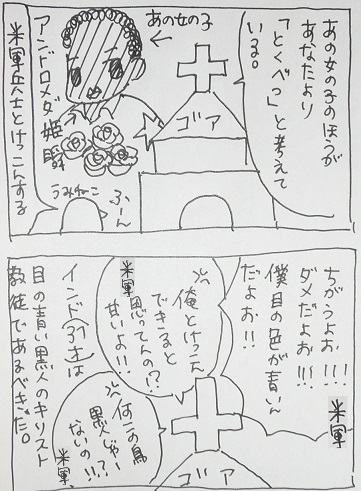 あの女の子のほうが
あなたより
「とくべつ」と考えて
いる。
あの女の子
アンドロメダ姫
ゴア
ふーん
うみねこ
米軍兵士とけっこんする
ちがうよお!!!!
ダメだよお!!!
米軍
僕目の色が青いん
だよお!!
俺とけっこん
できると
思ってんの!?
甘いよ!!
米軍
インド行きは
目の青い黒人のキリスト
教徒であるべきだ。
この鳥
黒人じゃー
ないの!!?
米軍
ゴア